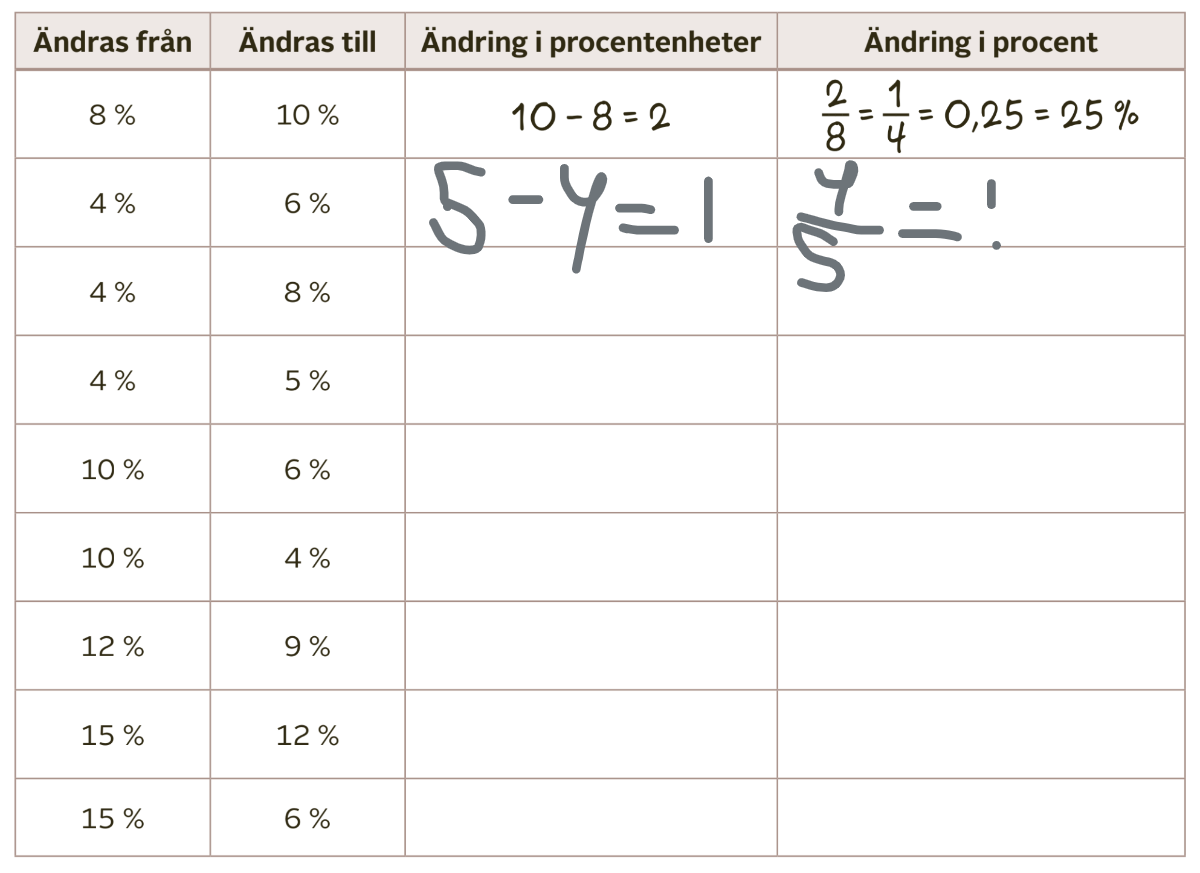 Ändras från Ändras till Ändring i procentenheter Ändring i procent
8 % 10 % 10 - 8 = 2 2/8 = 1/4 = 0,25 = 25 %
4 % 6 % 5 - 4 = 1 4/5 = !
4 % 8 %
4 % 5 %
10 % 6 %
10 % 4 %
12 % 9 %
15 % 12 %
15 % 6 %